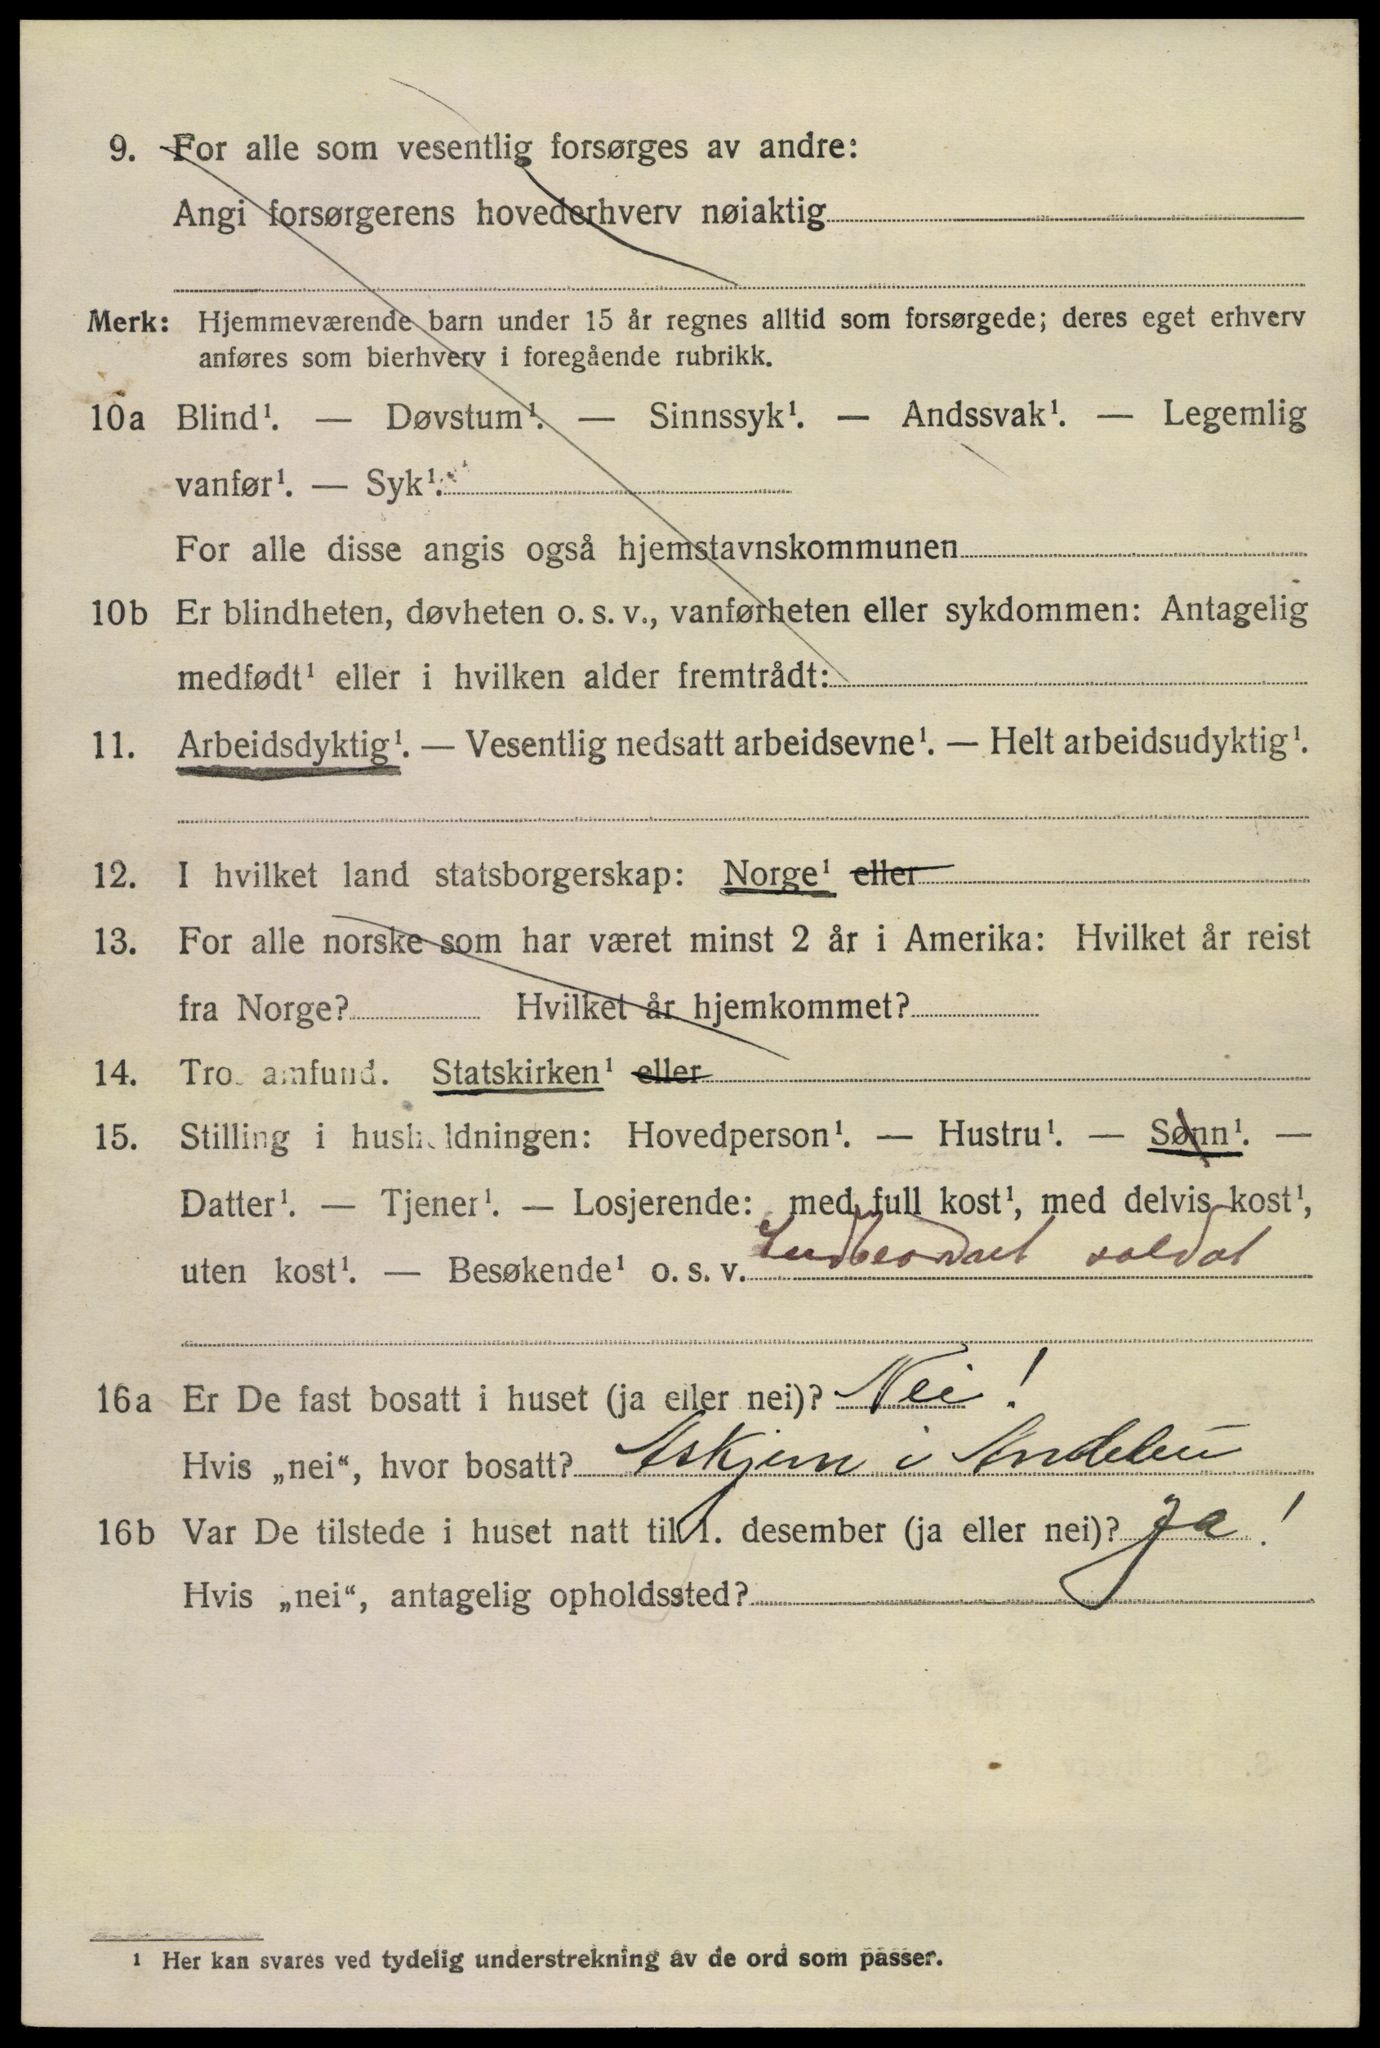 9. For alle som vesentlig forsørges av andre:
Angi forsørgerens hovederhverv nøiaktig
Merk: Hjemmeværende barn under 15 år regnes alltid som forsørgede; deres eget erhverv
anføres som bierhverv i foregående rubrikk.
10a Blind¹. — Døvstum¹. — Sinnssyk¹. — Andssvak¹. — Legemlig
vanfør¹. — Syk¹.
For alle disse angis også hjemstavnskommunen
10b Er blindheten, døvheten o. s. v., vanførheten eller sykdommen: Antagelig
medfødt¹ eller i hvilken alder fremtrådt:
11. Arbeidsdyktig¹. — Vesentlig nedsatt arbeidsevne¹. — Helt arbeidsudyktig¹.
12. I hvilket land statsborgerskap: Norge¹ eller
13. For alle norske som har været minst 2 år i Amerika: Hvilket år reist
fra Norge? Hvilket år hjemkommet?
14. Trossamfund. Statskirken¹ eller
15. Stilling i husholdningen: Hovedperson¹. — Hustru¹. — Sønn¹. —
Datter¹. — Tjener¹. — Losjerende: med full kost¹, med delvis kost¹,
uten kost¹. — Besøkende¹ o. s. v. soldat
16a Er De fast bosatt i huset (ja eller nei)? Nei!
Hvis „nei“, hvor bosatt? Askjem i Andebu
16b Var De tilstede i huset natt til 1. desember (ja eller nei)? Ja!
Hvis „nei“, antagelig opholdssted?
¹ Her kan svares ved tydelig understrekning av de ord som passer.